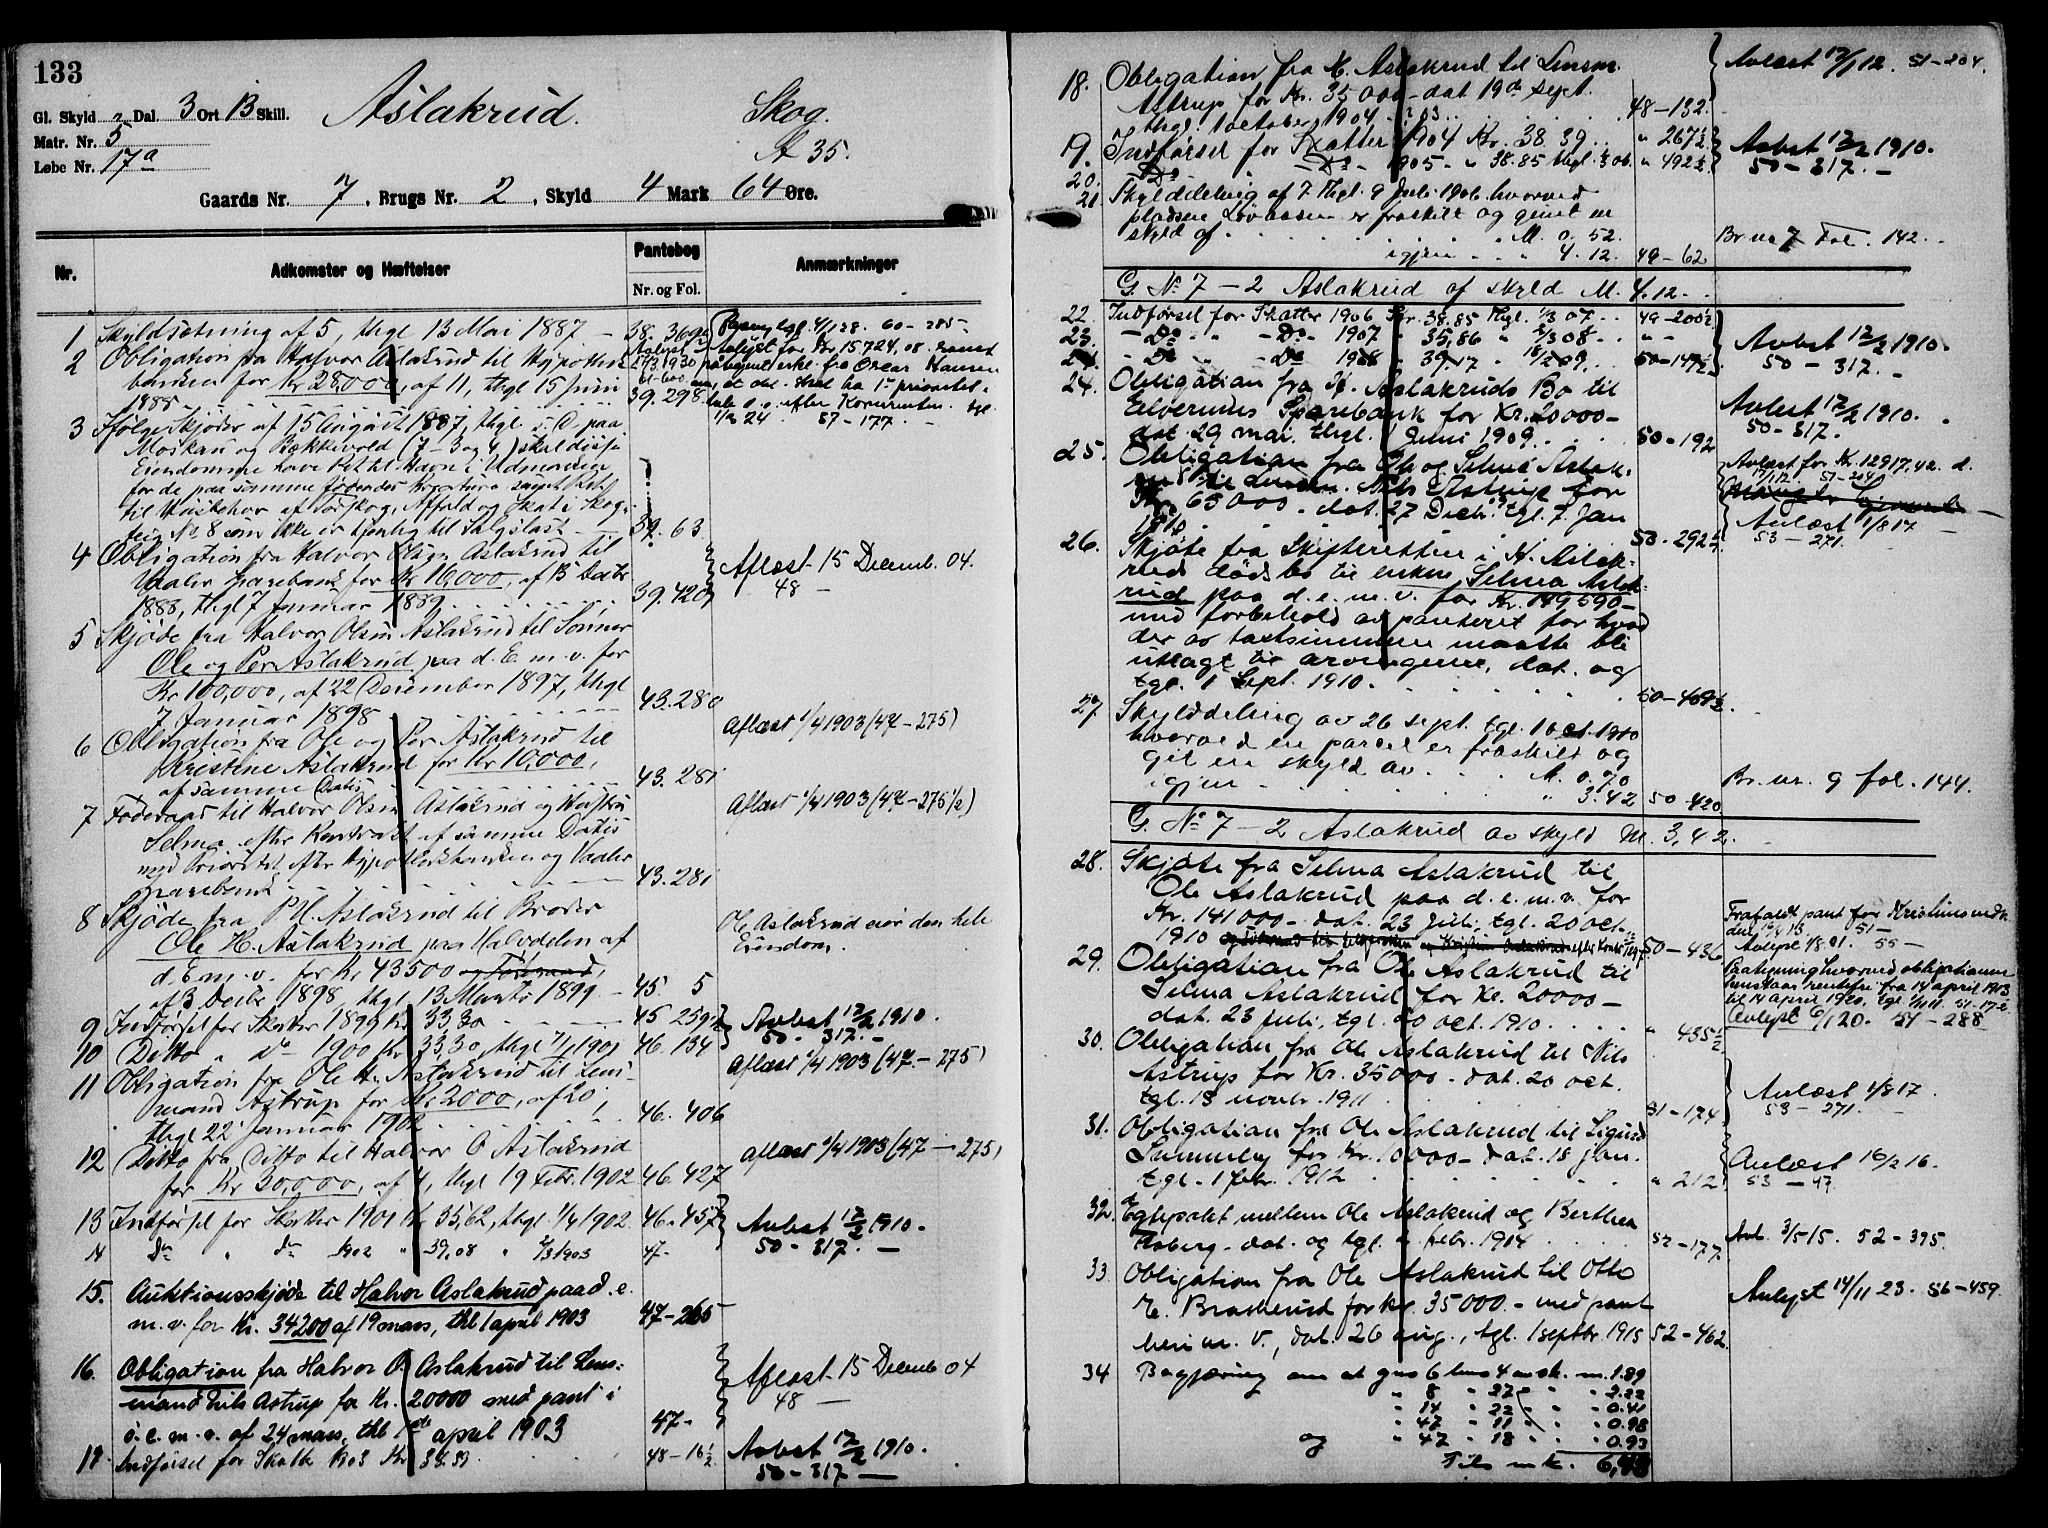 133
Gl. Skyld 2 Dal. 3 Ort 13 Skill. Aslakrud. Skog.
Matr. Nr. 5
Løbe Nr. 17a A 35.
Gaards Nr. 7, Brugs Nr. 2, Skyld 4 Mark 64 Øre.
Nr. Adkomster og Hæftelser Pantebog Anmærkninger
Nr. og Fol.
1 Skyldsætning af 5, thgl 13 Mai 1887 - 38. 369
2 Obligation fra Halvor Aslakrud til Hypothek
banken for Kr 28,000, af 11, thgl 15 Juni
1885 39. 298.
Avlyst for Kr 15724,08.
fra Oscar Hansen
1/2 24 57-177.
3 Ifølge skjøder af 15 August 1887, thgl s. D. paa
Moskau og Bækkevold (7-3 og 4)
Eiendomme have Ret til Havn i Udmarken
for de paa samme fødendes Kreaturer samt Ret
til Huusbehov af Torskog, Affald og Skat i Skog-
teig No 8 som ikke er tjenlig til Salgslast - 39. 63
4 Obligation fra Halvor Olsen Aslakrud til
Vaaler Sparebank for Kr 16,000, af 13 Decbr
1888, thgl 7 Januar 1889 39. 420
Aflæst 15 Decemb. 04.
48 -
5 Skjøde fra Halvor Olsen Aslakrud til Sønner
Ole og Per Aslakrud paa d. E. m. v. for
Kr 100,000, af 22 December 1897, thgl
7 Januar 1898 43. 280
6 Obligation fra Ole og Per Aslakrud til
Kristine Aslakrud for Kr 10,000,
af samme Datis 43. 281
Aflæst 1/4 1903 (47-275)
7 Føderaad til Halvor Olsen Aslakrud og Hustru
Selma efter Kontrakt af samme Datis
med Prioritet efter Hypothekbanken og Vaaler
Sparebank 43. 281
Aflæst 1/4 1903 (47-275 1/2)
8 Skjøde fra P. H. Aslakrud til Broder
Ole H. Aslakrud paa Halvdelen af
d. E. m. v. for Kr 43500 og Føderaad,
af 3 Decbr 1898, thgl 13 Marts 1899 - 45 5
Ole Aslakrud eier den hele
Eiendom.
9 Indførsel for Skatter 1899 Kr 33,30 45 259
10 Ditto " do 1900 Kr 33,30, thgl 1/4 1901 46. 134
Avlæst 12/2 1910.
50-317. -
11 Obligation fra Ole H. Aslakrud til Lens-
mand Astrup for Kr 2000, af 20,
thgl 22 Januar 1902 46. 406
Aflæst 1/4 1903 (47-275)
12 Ditto fra Ditto til Halvor O Aslakrud
for Kr 30,000, af 4, thgl 19 Febr. 1902 46. 427
Aflæst 1/4 1903 (47-275)
13 Indførsel for Skatter 1901 Kr 35,62, thgl 1/4 1902. 46. 457
14 Do " do 1902 " 39,08 " 2/3 1903 47-
Avlæst 12/2 1910.
50-317. -
15. Auktionsskjøde til Halvor Aslakrud paa d. e.
m. v. for Kr. 34200 af 19 mars, thl 1 april 1903 47-265
16. Obligation fra Halvor O. Aslakrud til Lens-
mand Nils Astrup for Kr. 20000 med pant i
d. e. m. v. af 24 mars, thl 1ste april 1903 47-
Aflæst 15 Decemb 04
48 -
17. Indførsel for Skatter 1903 Kr 38.39 48-16 1/2
Avlæst 12/2 1910.
50-317 -
18. Obligation fra H. Aslakrud til Lensm.
Astrup for Kr. 35000 - dat 19de Sept.
thgl. 1 october 1904 48-132.
Avlæst 12/1 12. 51-204.
19. Indførsel for Skatter 1904 Kr. 38.39 " 267 1/2
20. Do - Do - 1905 - " 38.85 thgl. 06. " 492 1/2
Avlæst 12/2 1910.
50-317. -
21 Skylddeling af 7 thgl. 9 Juli 1906. hvorved
pladsen Løvaasen er fraskilt og givet en
skyld af M. 0. 52.
igjen " 4. 12. 49-62
Br. no 7 Fol. 142.
G. No 7-2 Aslakrud af skyld M. 4.12.
22. Indførsel for Skatter 1906 Kr. 38.85 thgl. 1/3 07. 49-200 1/2
23. - Do - - Do - 1907 " 35,86 " 2/3 08. " -
24. - Do - - Do 1908 " 39.17 " 18/2 09. 50-147 1/2
Avlæst 12/2 1910.
50-317. -
24. Obligation fra H. Aslakruds Bo til
Elverums Sparebank for Kr. 20000 -
dat. 29 mai. thgl. 1 Juni 1909. 50-192
Avlæst 12/2 1910.
50-317.
25. Obligation fra Ole og Selma Aslak-
rud til Lensm. Nils Astrup for
Kr. 65000 - dat. 27 Decbr. tgl. 7. Jan
1910. 50-292 1/2
Avlæst for Kr. 12917,42. d.
17/1 12. 51-204
Avlæst 1/8 17 -
53-271.
26. Skjøte fra Skifteretten i H. Aslak-
ruds dødsbo til enken Selma Aslak-
rud paa d. e. m. v. for Kr. 149590 -
med forbehold av panteret for hvad
der av taxtsummen maatte bli
utlagt til arvingerne, dat. og
tgl. 1 Sept. 1910. 50-409 1/2
27. Skylddeling av 26 sept. tgl. 1 oct. 1910
hvorved en parcel er fraskilt og
git en skyld av M. 0.70
igjen " 3.42 50-420
Br. nr. 9 fol. 144.
G. No 7-2 Aslakrud av skyld M. 3,42.
28. Skjøte fra Selma Aslakrud til
Ole Aslakrud paa d. e. m. v. for
Kr. 141000 - dat. 23 Juli, tgl. 20 oct.
1910 50-436
29. Obligation fra Ole Aslakrud til
Selma Aslakrud for Kr. 20000 -
dat. 23 Juli, tgl. 20 oct. 1910. " 435 1/2
Paategning hvorved obligationen
henstaar rentefri fra 14 april 1913
til 14 april 1920,
Avlyst 6/1 20. 54-288
30. Obligation fra Ole Aslakrud til Nils
Astrup for Kr. 35000 - dat. 20 oct.
tgl. 18 novbr. 1911. 51-174
Avlæst 1/8 17
53-271.
31. Obligation fra Ole Aslakrud til Sigurd
Lummeby for Kr. 10000 - dat. 18 jan.
tgl. 1 febr. 1912 " 212
Avlæst 16/2 16.
53-47
32. Egtepakt mellem Ole Aslakrud og Berthea
Aaberg - dat. og tgl. febr. 1914 52-177.
Avl. 3/5 15. 52-395.
33 Obligation fra Ole Aslakrud til Otto
E. Braskerud for kr. 35000. - med pant
heri m. v., dat. 26 aug., tgl. 1 septbr. 1915 52-462.
Avlyst 14/11 23. 56-459.
34 Begjæring om at gno 6 bno 4 av sk. m. 1.89
" 8 " 27 " " 2.22
" 14 " 22 " " 0.41
" 47 " 11 " " 0.98
og " 47 " 18 " " 0.93
Tils mk. 6,43